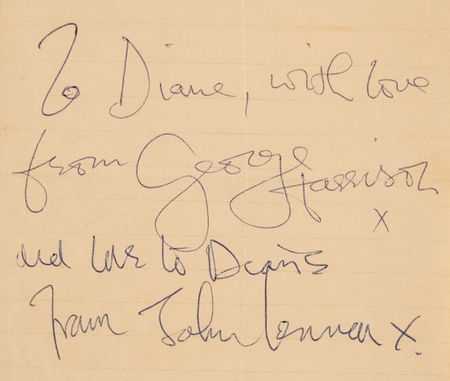 To Diane, with love
from George Harrison
x
and love to Diane
from John Lennon x.